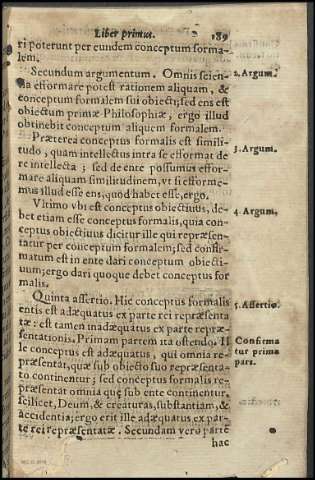 Liber primus. 189
ri poterunt per eundem conceptum forma-
lem.
Secundum argumentum. Omnis scien- 2. Argum.
tia efformare potest rationem aliquam, &
conceptum formalem sui obiecti; sed ens est
obiectum primæ Philosophiæ, ergo illud
obtinebit conceptum aliquem formalem.
Præterea conceptus formalis est simili-
tudo, quam intellectus intra se efformat de 3. Argum.
re intellecta; sed de ente possumus effor-
mare aliquam similitudinem, vt si efforme-
mus illud esse ens, quod habet esse, ergo.
Vltimo vbi est conceptus obiectiuus, de-
bet etiam esse conceptus formalis, quia con- 4. Argum.
ceptus obiectiuus dicitur ille qui repræsen-
tatur per conceptum formalem; sed confir-
matum est in ente dari conceptum obiecti-
uum; ergo dari quoque debet conceptus for
malis.
Quinta assertio. Hic conceptus formalis
entis est adæquatus ex parte rei repræsenta 5. Assertio.
tæ: est tamen inadæquatus ex parte repræ-
sentationis. Primam partem ita ostendo. Il Confirma
le conceptus est adæquatus, qui omnia re- tur prima
præsentat, quæ sub obiecto suo repræsenta- pars.
to continentur; sed conceptus formalis re-
præsentat omnia quę sub ente continentur,
scilicet, Deum, & creaturas, substantiam, &
accidentia; ergo erit ille adæquatus ex par-
te rei repræsentatæ. Secundam verò parte
hac